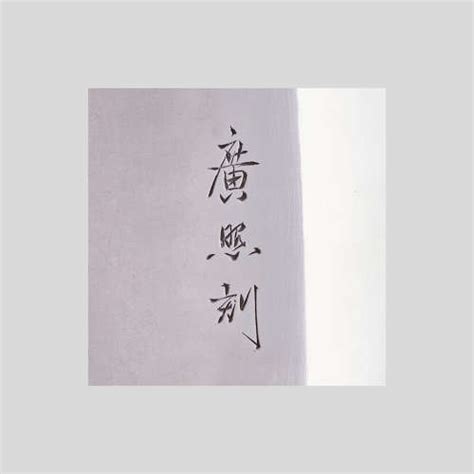 廣照刻